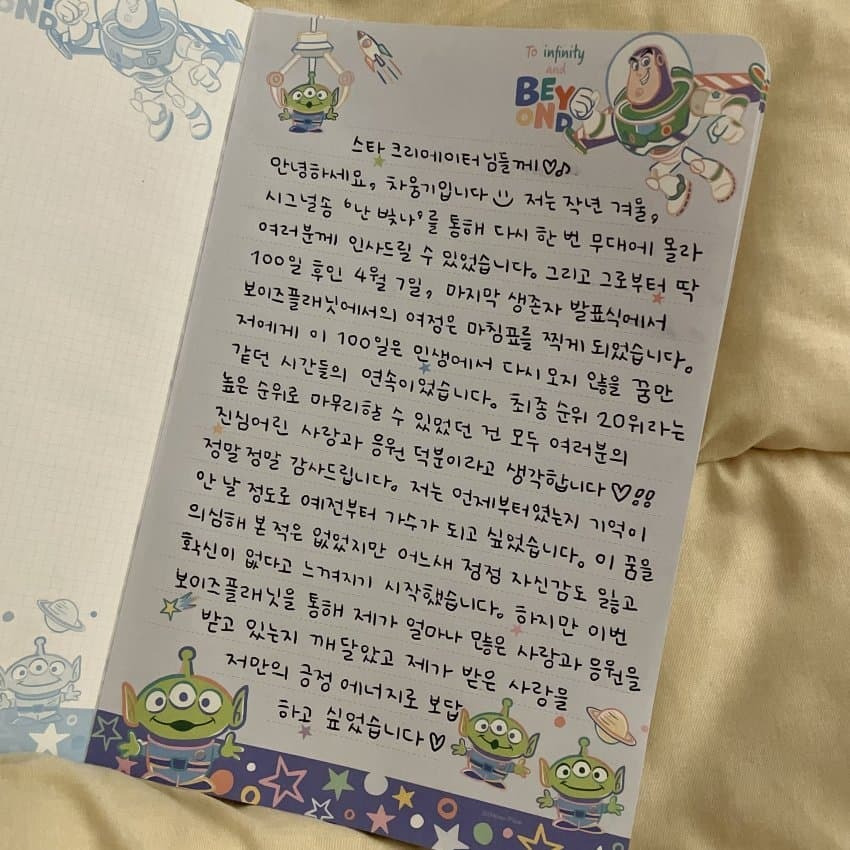 OND
To infinity
and
BEY
OND
스타 크리에이터님들께♡♪
안녕하세요, 차웅기입니다☺ 저는 작년 겨울,
시그널송 '난 빛나'를 통해 다시 한 번 무대에 올라
여러분께 인사드릴 수 있었습니다. 그리고 그로부터 딱
100일 후인 4월 7일, 마지막 생존자 발표식에서
보이즈플래닛에서의 여정은 마침표를 찍게 되었습니다.
저에게 이 100일은 인생에서 다시 오지 않을 꿈만
같던 시간들의 연속이었습니다. 최종 순위 20위라는
높은 순위로 마무리할 수 있었던 건 모두 여러분의
진심어린 사랑과 응원 덕분이라고 생각합니다♡!!
정말정말 감사드립니다. 저는 언제부터였는지 기억이
안 날 정도로 예전부터 가수가 되고 싶었습니다. 이 꿈을
의심해 본 적은 없었지만 어느새 점점 자신감도 잃고
확신이 없다고 느껴지기 시작했습니다. 하지만 이번
보이즈플래닛을 통해 제가 얼마나 많은 사랑과 응원을
받고 있는지 깨달았고 제가 받은 사랑을
저만의 긍정 에너지로 보답
하고 싶었습니다♡